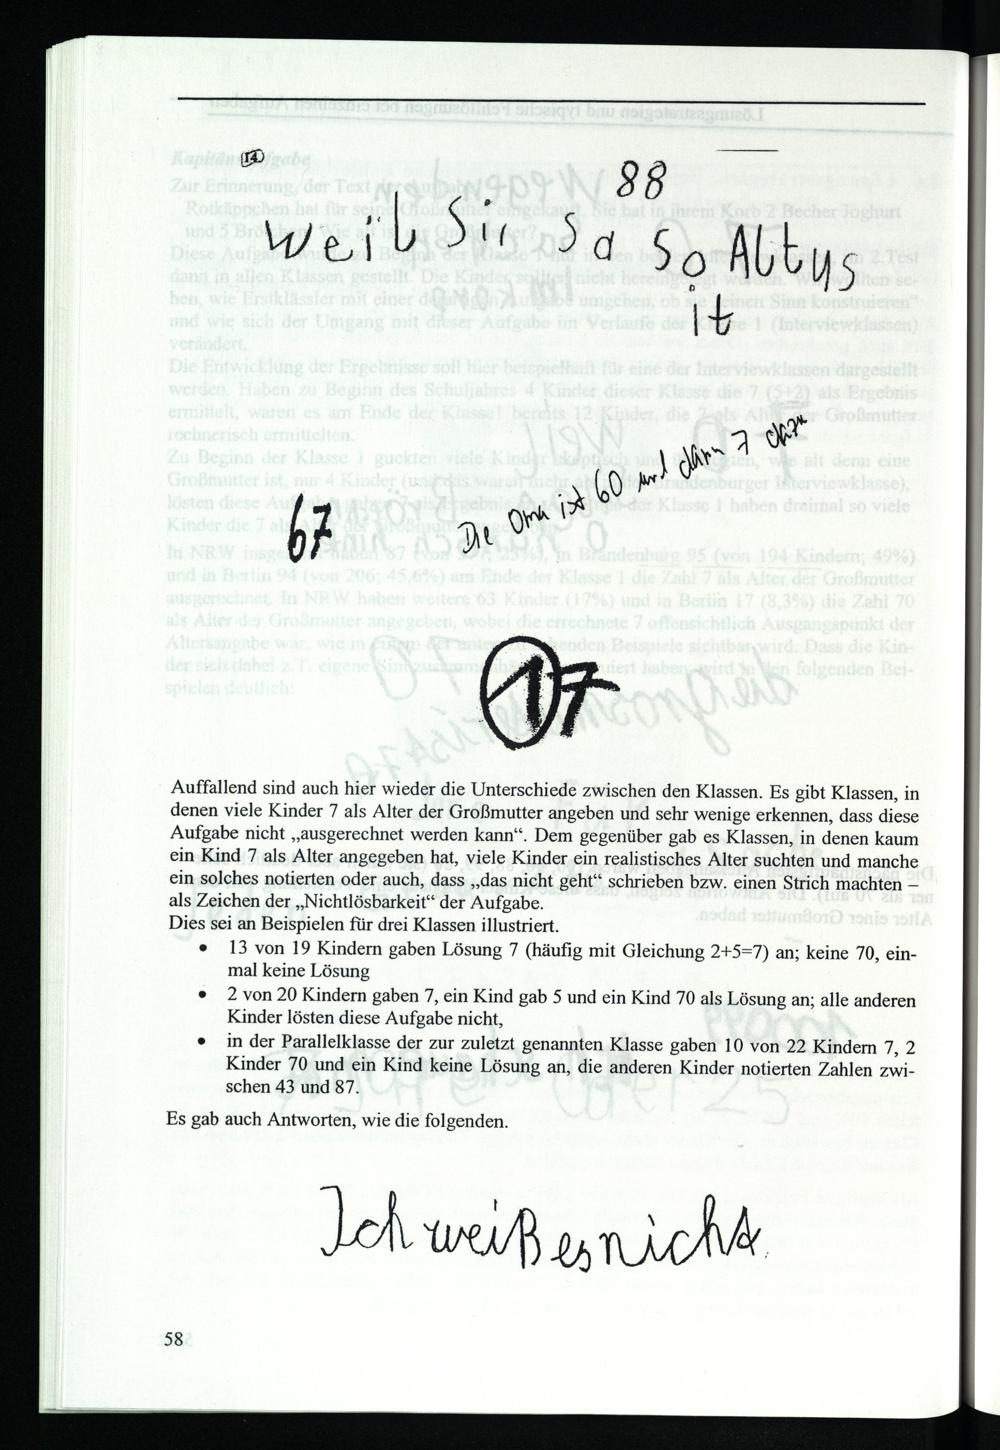 14
88
weil Sir sa so Altys
it
67
Die Oma ist 60 und dann 7 dazu
17
Auffallend sind auch hier wieder die Unterschiede zwischen den Klassen. Es gibt Klassen, in
denen viele Kinder 7 als Alter der Großmutter angeben und sehr wenige erkennen, dass diese
Aufgabe nicht „ausgerechnet werden kann“. Dem gegenüber gab es Klassen, in denen kaum
ein Kind 7 als Alter angegeben hat, viele Kinder ein realistisches Alter suchten und manche
ein solches notierten oder auch, dass „das nicht geht“ schrieben bzw. einen Strich machten –
als Zeichen der „Nichtlösbarkeit“ der Aufgabe.
Dies sei an Beispielen für drei Klassen illustriert.
• 13 von 19 Kindern gaben Lösung 7 (häufig mit Gleichung 2+5=7) an; keine 70, ein-
mal keine Lösung
• 2 von 20 Kindern gaben 7, ein Kind gab 5 und ein Kind 70 als Lösung an; alle anderen
Kinder lösten diese Aufgabe nicht,
• in der Parallelklasse der zur zuletzt genannten Klasse gaben 10 von 22 Kindern 7, 2
Kinder 70 und ein Kind keine Lösung an, die anderen Kinder notierten Zahlen zwi-
schen 43 und 87.
Es gab auch Antworten, wie die folgenden.
Ich weiß es nicht
58